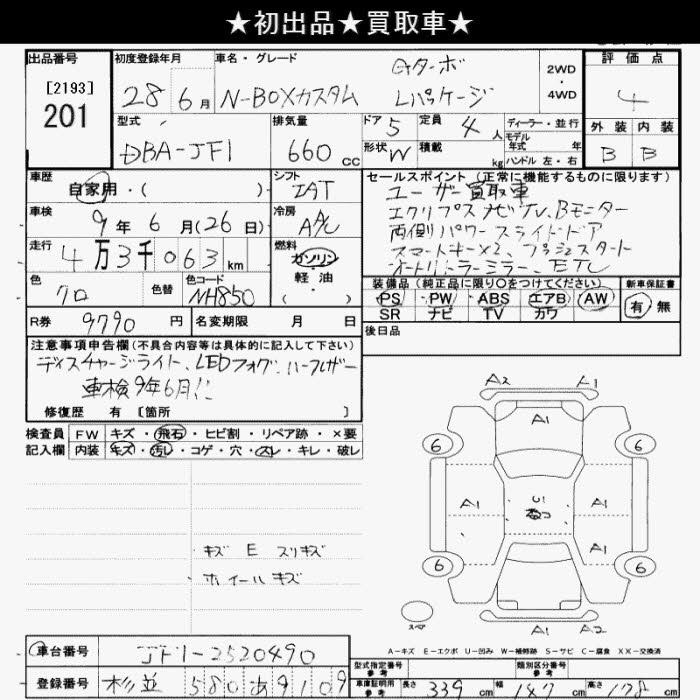 ★初出品★買取車★
出品番号
[2193]
201
初度登録年月
28年 6月
車名・グレード
N-BOXカスタム
Gターボ
Lパッケージ
2WD
・
4WD
評価点
4
外装 内装
B B
型式
DBA-JF1
排気量
660 cc
ドア 5
定員 4 人
形状 W
積載 kg
ディーラー・並行
モデル
年式 年
ハンドル 左・右
車歴
自家用・( )
シフト
IAT
車検
9年 6月(26日)
冷房
A/C
走行
4万3千063km
燃料
ガソリン
軽・油
( )
色
クロ
色替
色コード
NH850
セールスポイント (正常に機能するものに限ります)
ユーザー買取車
エクリプスナビTV、Bモニター
両側パワースライドドア
スマートキー×2、プッシュスタート
オートリトラミラー、ETC
装備品 (純正品に限り○をつけてください)
PS PW ABS エアB AW
SR ナビ TV カワ
新車保証書
有 無
R券 9790円
名変期限 月 日
後日品
注意事項申告欄(不具合内容等は具体的に記入して下さい)
ディスチャージライト、LEDフォグ、ハーフレザー
車検9年6月!!
修復歴 有 [箇所 ]
検査員 FW キズ・飛石・ヒビ割・リペア跡・×要
記入欄 内装 キズ・汚レ・コゲ・穴・スレ・キレ・破レ
キズ E スリキズ
ホイールキズ
A2 L1
A1
6 6
A1 U1 A1
A1
6 6
A1
スペア
A2 A1
A-キズ E-エクボ U-凹み W-補修跡 S-サビ C-腐食 XX-交換済
車台番号 JF1-2520490
登録番号 杉並 580あ9109
型式指定番号
参考
類別区分番号
参考
車庫証明用
参考
長さ 339cm 幅 147cm 高さ 178cm